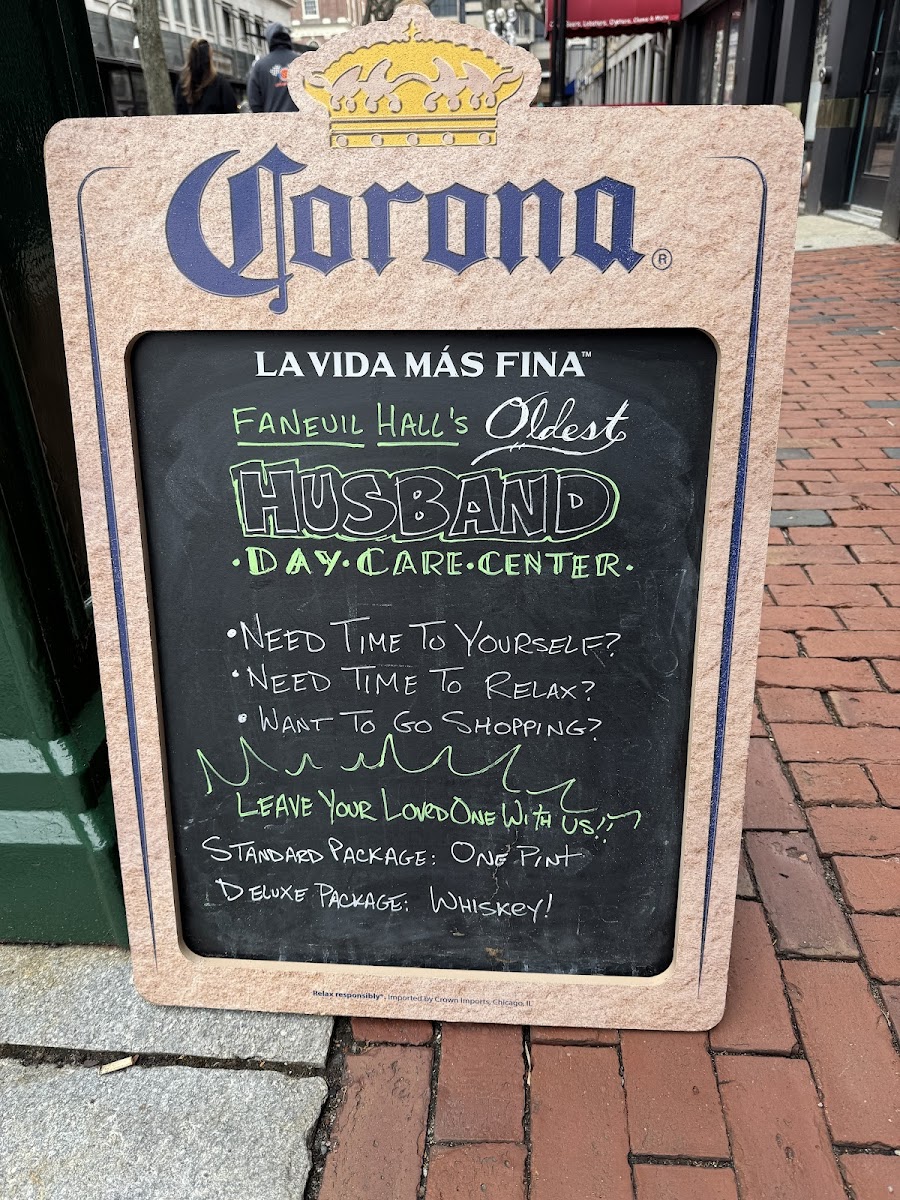 Corona®
LA VIDA MÁS FINA™
FANEUIL HALL'S Oldest
HUSBAND
·DAY·CARE·CENTER·
• NEED TIME TO YOURSELF?
• NEED TIME TO RELAX?
• WANT TO GO SHOPPING?
LEAVE YOUR LOVED ONE WITH US!!
STANDARD PACKAGE: ONE PINT
DELUXE PACKAGE: WHISKEY!
Relax responsibly®. Imported by Crown Imports, Chicago, IL